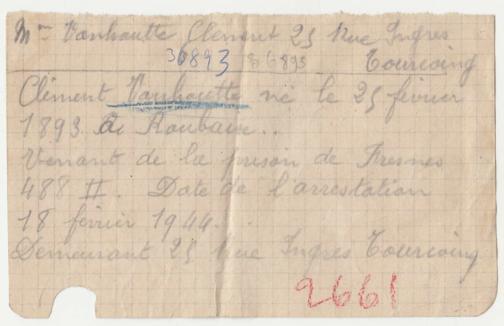 Mme Vanhoutte Clément 25 Rue Ingres
36893 36893 Tourcoing
Clément Vanhoutte né le 25 février
1893 à Roubaix..
Venant de la prison de Fresnes
488 II. Date de l'arrestation
18 février 1944.
Demeurant 25 Rue Ingres Tourcoing
2661